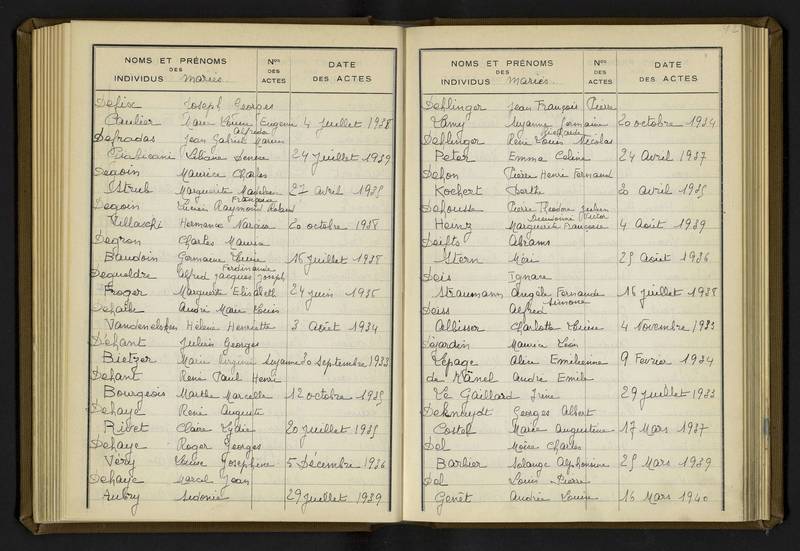 NOMS ET PRÉNOMS
DES
INDIVIDUS mariés
Nos
DES
ACTES
DATE
DES ACTES
Defix Joseph Georges
Paulier Marie Louise Eugenie 4 Juillet 1938
Alfreda
Defradas Jean Gabriel Marius
24 Juillet 1939
Degoin Maurice Charles
Strub Marguerite Madeleine 27 avril 1935
Françoise
Degoin Lucien Raymond Robert
Villaschi Hermance Narcisa 20 octobre 1938
Degron Charles Maurice
Baudoin Germaine Louise 16 Juillet 1938
Ferdinande
Degueldre Alfred Jacques Joseph
Froger Marguerite Elisabeth 24 juin 1935
André Marie Louis
Hélène Henriette 3 Août 1934
Déhant Julien Georges
Bietzer Marie Virginie Suzanne 30 septembre 1933
Dehant René Paul Henri
Bourgeois Marthe Marcelle 12 octobre 1935
Dehaye René Auguste
Rivet Claire Lydie 20 juillet 1935
Dehaye Roger Georges
Véry Louise Josephine 5 Décembre 1936
Dehaye Marcel Jean
Aubry Sidonie 29 juillet 1939
NOMS ET PRÉNOMS
DES
INDIVIDUS mariés
Nos
DES
ACTES
DATE
DES ACTES
Dehlinger Jean François Pierre
Lamy Suzanne Germaine 20 octobre 1934
Dehlinger René Louis Nicolas
Peter Emma Celine 24 Avril 1937
Dehon Pierre Henri Fernand
Kochert Berthe 20 avril 1935
Dehousse Pierre Théodore Julien
Dieudonné Victor
Heinz Marguerite Françoise 4 Août 1939
Abrams
Stern Méri 25 août 1936
Deis Ignace
Straumann Angèle Fernande 16 juillet 1938
Simone
Deiss Alfred
Allissor Charlotte Louise 4 Novembre 1933
Dejardin Maurice Léon
Lepage Alice Emilienne 9 Fevrier 1934
André Emile
Le Gaillard Irène 29 juillet 1933
Georges Albert
Costel Marie Augustine 17 Mars 1937
Del Moïse Charles
Barbier Solange Alphonsine 25 Mars 1939
Del Louis Pierre
Genêt Andrée Louise 16 Mars 1940